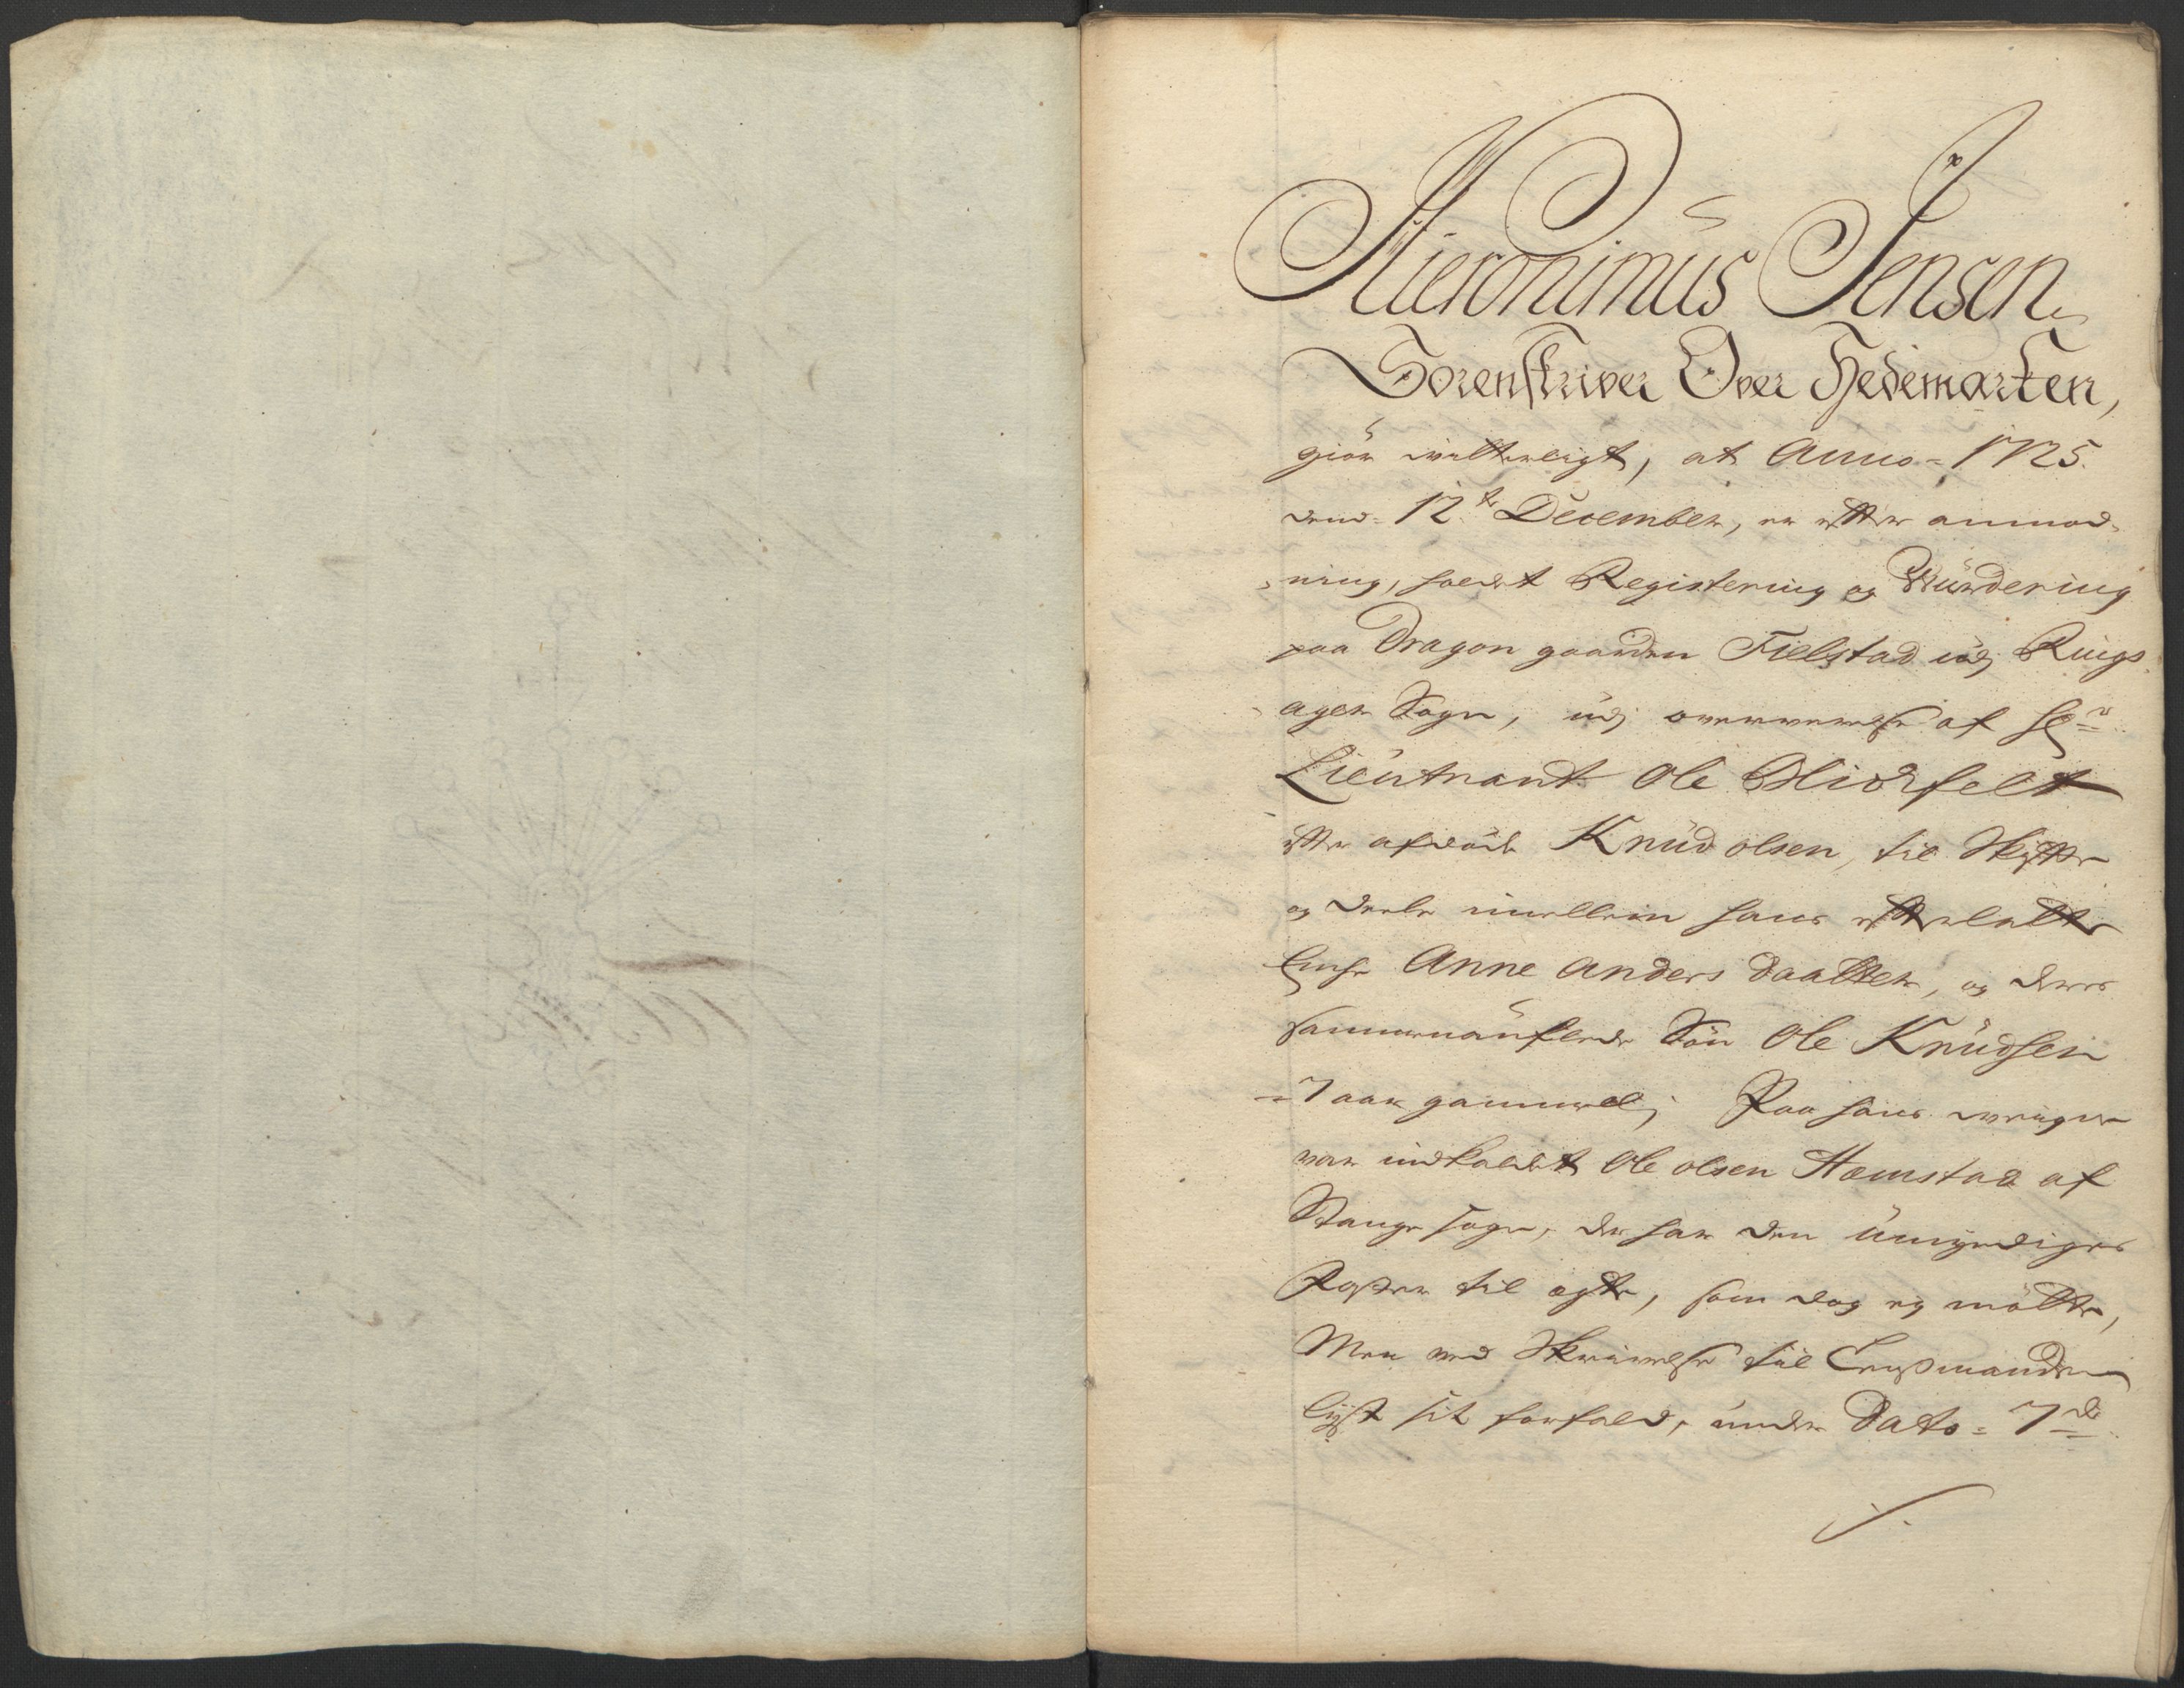 Hieronimus Jensen
Sorenskriver Over Hedemarken,
giör witterligt, at Anno = 1725.
dend = 12te December, er effter anmod,
ning, holdt Registering og Wurdering
paa Dragon gaarden Fielstad udj Rings
ager Sogn, udj overwerelse af Hr
Lieutnant Ole Hiortfelt
effter afdöde Knud olsen, til Skiffte
og Deele imellem hans effterlatte
Enche Anne Anders daatter, og deres
sammenauflede Sön Ole Knudsen
= 7 aar gammel; Paa hans wegne
war indkaldet Ole olsen Hemstad af
Stange sogn, der har den umÿndiges
Faster til ægte, som dog eÿ mötte,
Men ved Skrivelse til Lensmanden
lÿst sit forfald, under Dato = 7de